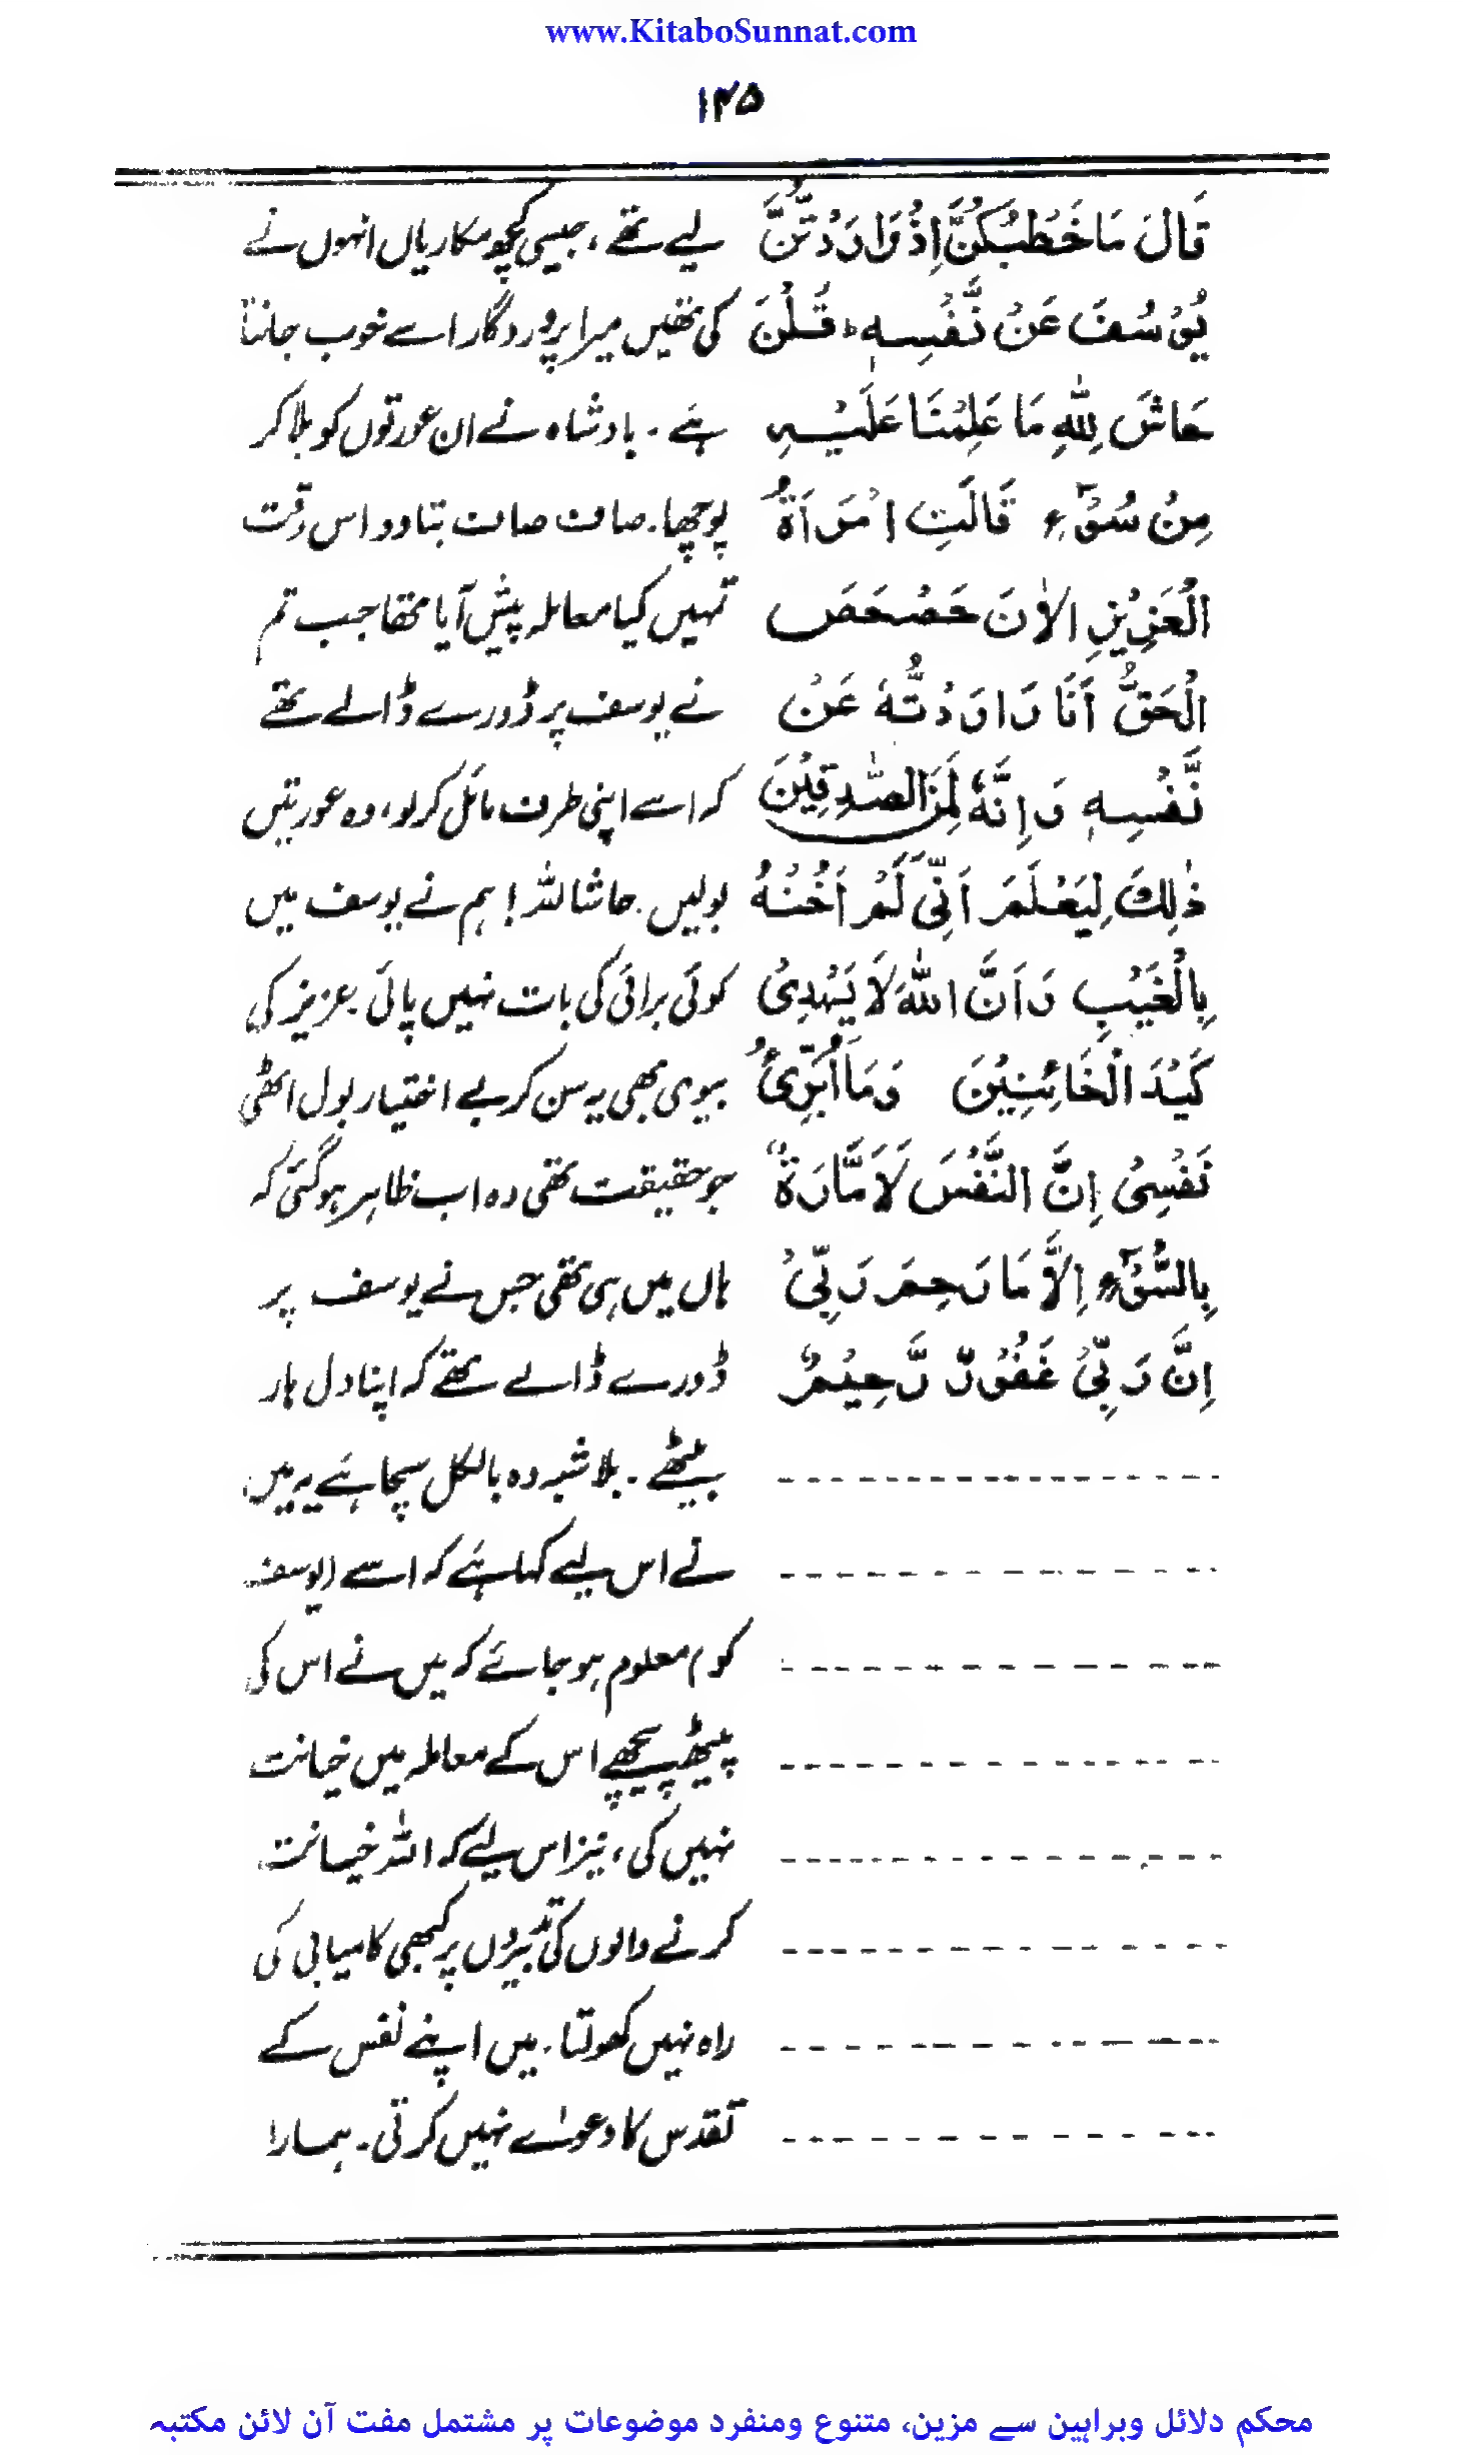 www.KitaboSunnat.com
۱۲۵
قَالَ مَا خَطْبُكُنَّ اِذْ رَاوَدْتُّنَّ
يُوْسُفَ عَنْ نَّفْسِهٖ ؕ قُلْنَ
حَاشَ لِلّٰهِ مَا عَلِمْنَا عَلَيْهِ
مِنْ سُوْٓءٍ قَالَتِ امْرَاَةُ
الْعَزِيْزِ الْاٰنَ حَصْحَصَ
الْحَقُّ اَنَا رَاوَدْتُّهٗ عَنْ
نَّفْسِهٖ وَاِنَّهٗ لَمِنَ الصّٰدِقِيْنَ
ذٰلِكَ لِيَعْلَمَ اَنِّىْ لَمْ اَخُنْهُ
بِالْغَيْبِ وَاَنَّ اللّٰهَ لَا يَهْدِىْ
كَيْدَ الْخَائِنِيْنَ وَمَا اُبَرِّئُ
نَفْسِىْ اِنَّ النَّفْسَ لَاَمَّارَةٌ
بِالسُّوْٓءِ اِلَّا مَا رَحِمَ رَبِّىْ
اِنَّ رَبِّىْ غَفُوْرٌ رَّحِيْمٌ
لیے تھے، جیسی کچھ مکاریاں انہوں نے
کی تھیں میرا پروردگار اسے خوب جانتا
ہے۔ بادشاہ نے ان عورتوں کو بلا کر
پوچھا۔ صاف صاف بتا دو اس وقت
تمہیں کیا معاملہ پیش آیا تھا جب تم
نے یوسف پر ڈورے ڈالے تھے
کہ اسے اپنی طرف مائل کر لو، وہ عورتیں
بولیں۔ حاشا للہ! ہم نے یوسف میں
کوئی برائی کی بات نہیں پائی۔ عزیز کی
بیوی بھی یہ سن کر بے اختیار بول اٹھی
جو حقیقت تھی وہ اب ظاہر ہو گئی کہ
ہاں میں ہی تھی جس نے یوسف پر
ڈورے ڈالے تھے کہ اپنا دل ہار
بیٹھے۔ بلا شبہ وہ بالکل سچا ہے یہ میں
نے اس لیے کہا ہے کہ اسے (یوسف
کو) معلوم ہو جائے کہ میں نے اس کی
پیٹھ پیچھے اس کے معاملہ میں خیانت
نہیں کی، نیز اس لیے کہ اللہ خیانت
کرنے والوں کی تدبیروں پر کبھی کامیابی کی
راہ نہیں کھولتا۔ میں اپنے نفس کے
تقدس کا دعوےٰ نہیں کرتی۔ ہمارا
محکم دلائل وبراہین سے مزین، متنوع ومنفرد موضوعات پر مشتمل مفت آن لائن مکتبہ